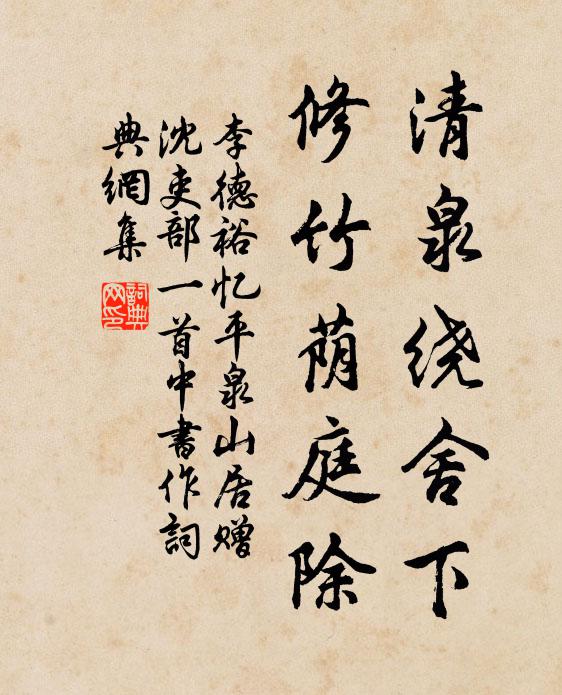 清泉绕舍下
修竹荫庭除
李德裕忆平泉山居赠
沈吏部一首中書作詞
典網集
詞典
网印